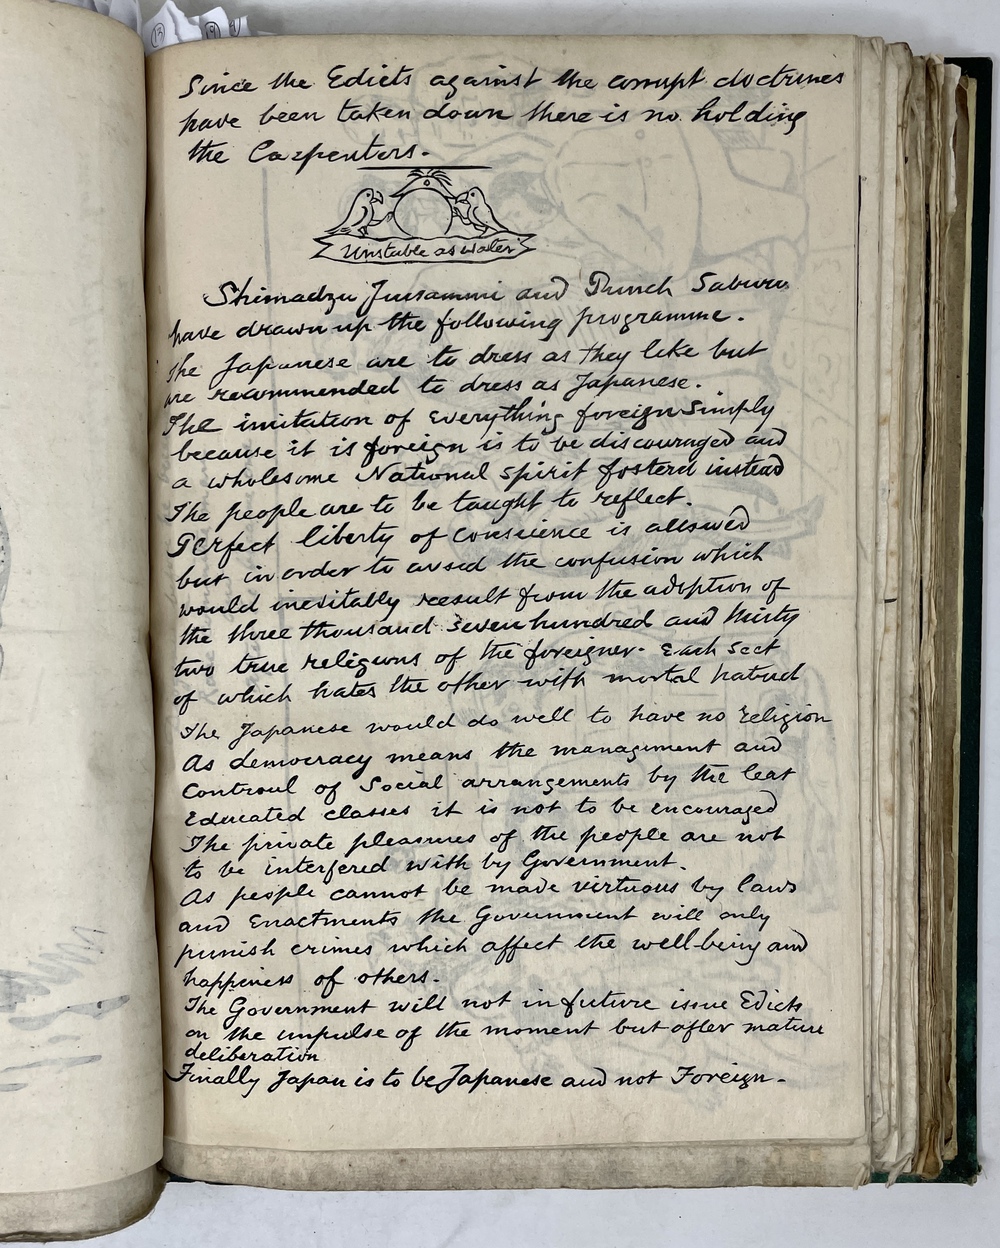 Since the Edicts against the corrupt doctrines
have been taken down there is no holding
the Carpenters.
Unstable as water
Shimadzu Jusammi and Punch Saburo
have drawn up the following programme.
The Japanese are to dress as they like but
are recommended to dress as Japanese.
The imitation of Everything foreign simply
because it is foreign is to be discouraged and
a wholesome National spirit fosterd instead
The people are to be taught to reflect.
Perfect liberty of conscience is allowed
but in order to avoid the confusion which
would inevitably result from the adoption of
the three thousand seven hundred and thirty
two true religions of the foreigner. Each sect
of which hates the other with mortal hatred
The Japanese would do well to have no religion
As democracy means the management and
controul of Social arrangements by the least
Educated classes it is not to be encouraged
The private pleasures of the people are not
to be interfered with by Government.
As people cannot be made virtuous by laws
and Enactments the Government will only
punish crimes which affect the well-being and
happiness of others.
The Government will not in future issue Edicts
on the impulse of the moment but after mature
deliberation
Finally Japan is to be Japanese and not Foreign.